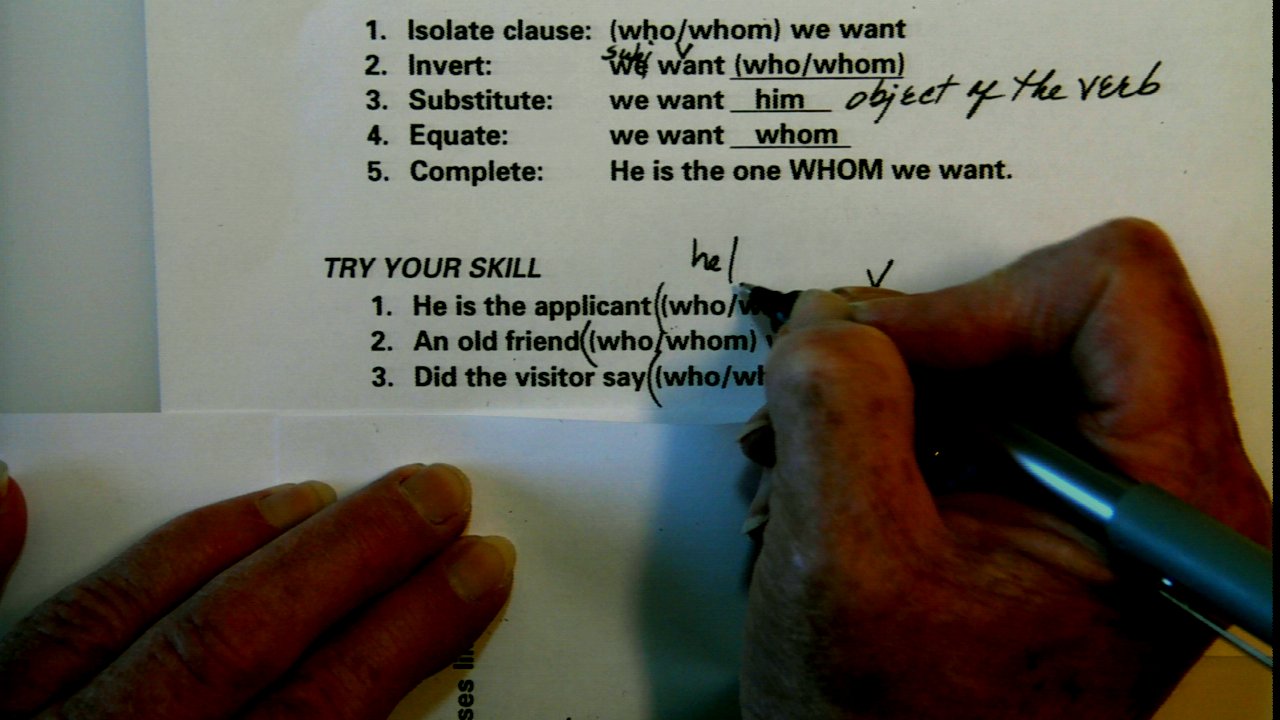 1. Isolate clause: (who/whom) we want
subj v
2. Invert: we want (who/whom)
3. Substitute: we want him object of the verb
4. Equate: we want whom
5. Complete: He is the one WHOM we want.
he/ V
TRY YOUR SKILL
1. He is the applicant ((who/
2. An old friend ((who/whom)
3. Did the visitor say ((who/wh